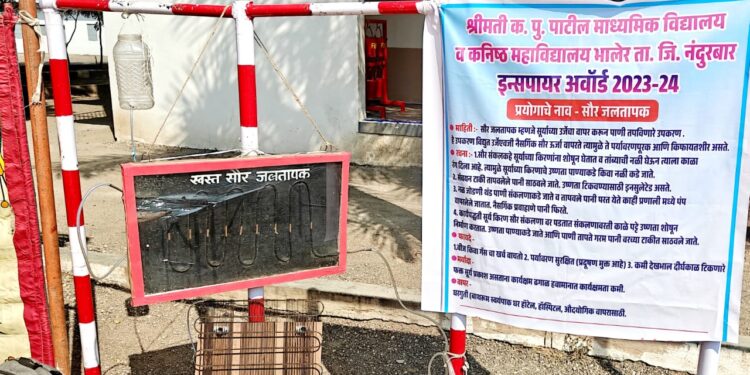 श्रीमती क. पु. पाटील माध्यमिक विद्यालय
व कनिष्ठ महाविद्यालय भालेर ता. जि. नंदुरबार
इन्सपायर अवॉर्ड 2023-24
प्रयोगाचे नाव - सौर जलतापक
माहिती :- सौर जलतापक म्हणजे सूर्याच्या उर्जेचा वापर करून पाणी तपविणारे उपकरण.
हे उपकरण विद्युत उर्जेऐवजी नैसर्गिक सौर ऊर्जा वापरते त्यामुळे ते पर्यावरणपूरक आणि किफायतशीर असते.
रचना :- 1.सौर संकलकहे सूर्याच्या किरणांना शोषुन घेतात व तांब्याची नळी घेऊन त्याला काळा
रंग दिला आहे. त्यामुळे सूर्याच्या किरणाचे उष्णता पाण्याकडे किंवा नळी कडे जाते.
2. संघयन टाकी तापवलेले पाणी साठवले जाते. उष्णता टिकवण्यासाठी इनसुलेटेड असते.
3. नळ जोडणी थंड पाणी संकलनाकडे जाते व तापवले पाणी परत येते काही प्रणाली मध्ये पंप
वापरलेले जातात. नैसर्गिक प्रवाहाने पाणी फिरते.
4. कार्यपद्धती सूर्य किरण सौर संकलना वर पडतात संकलणावरती काळे पट्टे उष्णता शोषून
निर्माण करतात. उष्णता पाण्याकडे जाते आणि पाणी तापते गरम पाणी वरच्या टाकीत साठवले जाते.
फायदे :-
1.वीज किंवा गॅस चा खर्च वाचतो 2. पर्यावरण सुरक्षित (प्रदूषण मुक्त आहे) 3. कमी देखभाल दीर्घकाळ टिकणारे
मर्यादा :-
फक्त सूर्य प्रकाश असताना कार्यक्षम ढगाळ हवामानात कार्यक्षमता कमी.
वापर :-
घरगुती (बाथरूम स्वयंपाक घर हॉटेल, हॉस्पिटल, औदयोगिक वापरासाठी.
स्वस्त सौर जलतापक